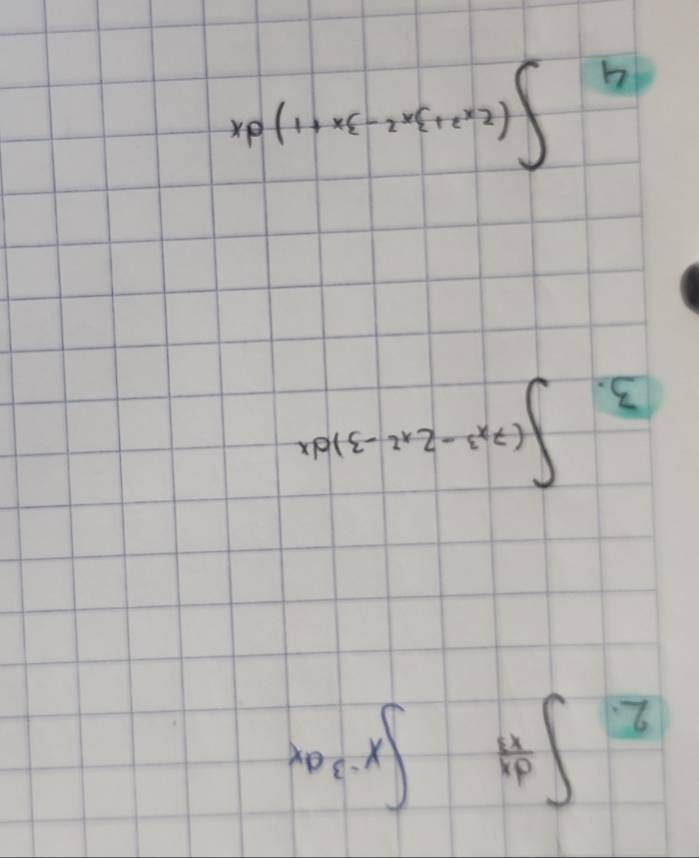 2. ∫ dx/x³ ∫ x⁻³ dx
3. ∫ (7x³ - 2x² - 3) dx
4 ∫ (2x⁷ + 3x² - 3x + 1) dx